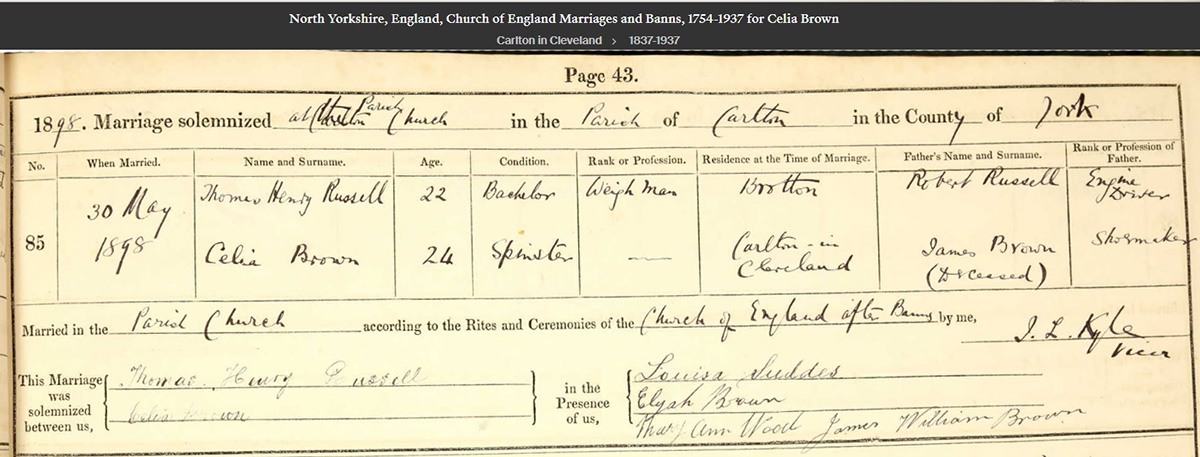 North Yorkshire, England, Church of England Marriages and Banns, 1754-1937 for Celia Brown
Carlton in Cleveland > 1837-1937
Page 43.
1898. Marriage solemnized at Parish Church in the Parish of Carlton in the County of York
No. When Married. Name and Surname. Age. Condition. Rank or Profession. Residence at the Time of Marriage. Father's Name and Surname. Rank or Profession of Father.
85
30 May 1898
Thomas Henry Russell 22 Bachelor Weigh Man Brotton Robert Russell Engine Driver
Celia Brown 24 Spinster — Carlton-in Cleveland James Brown (Deceased) Shoemaker
Married in the Parish Church according to the Rites and Ceremonies of the Church of England after Banns by me,
J. L. Kyle
Vicar
This Marriage was solemnized between us,
Thomas Henry Russell
Celia Brown
in the Presence of us,
Louisa Suddes
Elijah Brown
Mary Ann Wood James William Brown